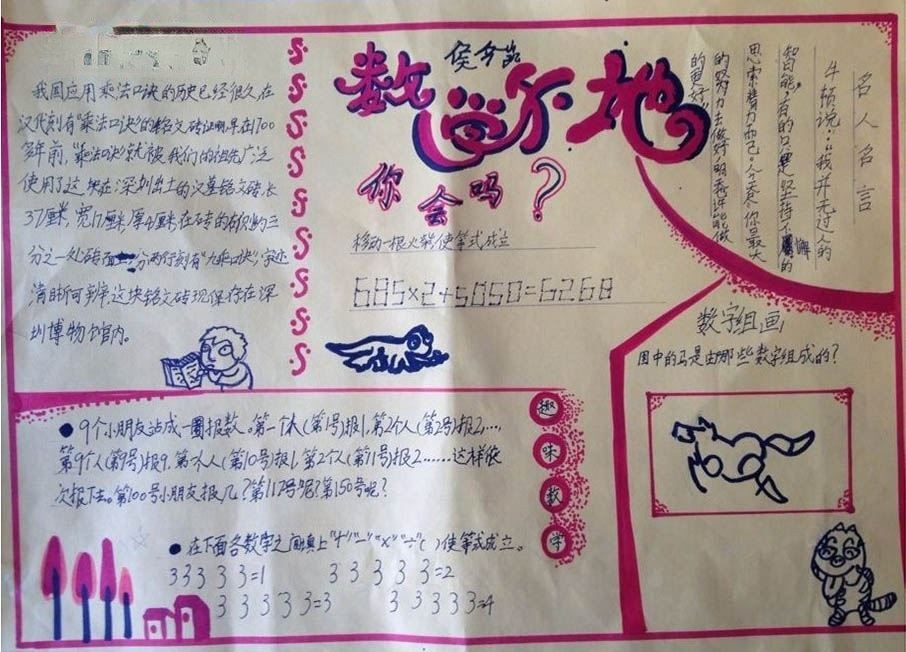 我国应用乘法口诀的历史已经很久,在
汉代刻有"乘法口诀"的铭文砖证明,早在1700
多年前,"乘法口诀"就被我们的祖先广泛
使用了这块在深圳出土的汉墓铭文砖长
37厘米,宽17厘米,厚4厘米,在砖的面积约三
分之一处砖面分两行刻有"九乘口诀",字迹
清晰可辨,这块铭文砖现保存在深
圳博物馆内。
数学天地
你会吗?
移动一根火柴使等式成立
685×2+5050=6268
名人名言
牛顿说:"我并无过人的
智能,有的只是坚持不懈的
思索精力而已。今天尽你最大
的努力去做好,明天你就能做
的更好。"
数字组画
图中的马是由哪些数字组成的?
●9个小朋友站成一圈报数。第一个人(第1号)报1,第2个人(第2号)报2,…,
第9个人(第9号)报9,第一个人(第10号)报1,第2个人(第11号)报2……这样依
次报下去。第100号小朋友报几?第112号呢?第150号呢?
趣
味
数
学
●在下面各数字之间填上"+""-""×""÷"( )使等式成立。
3 3 3 3 3=1 3 3 3 3 3=2
3 3 3 3 3=3 3 3 3 3 3=4